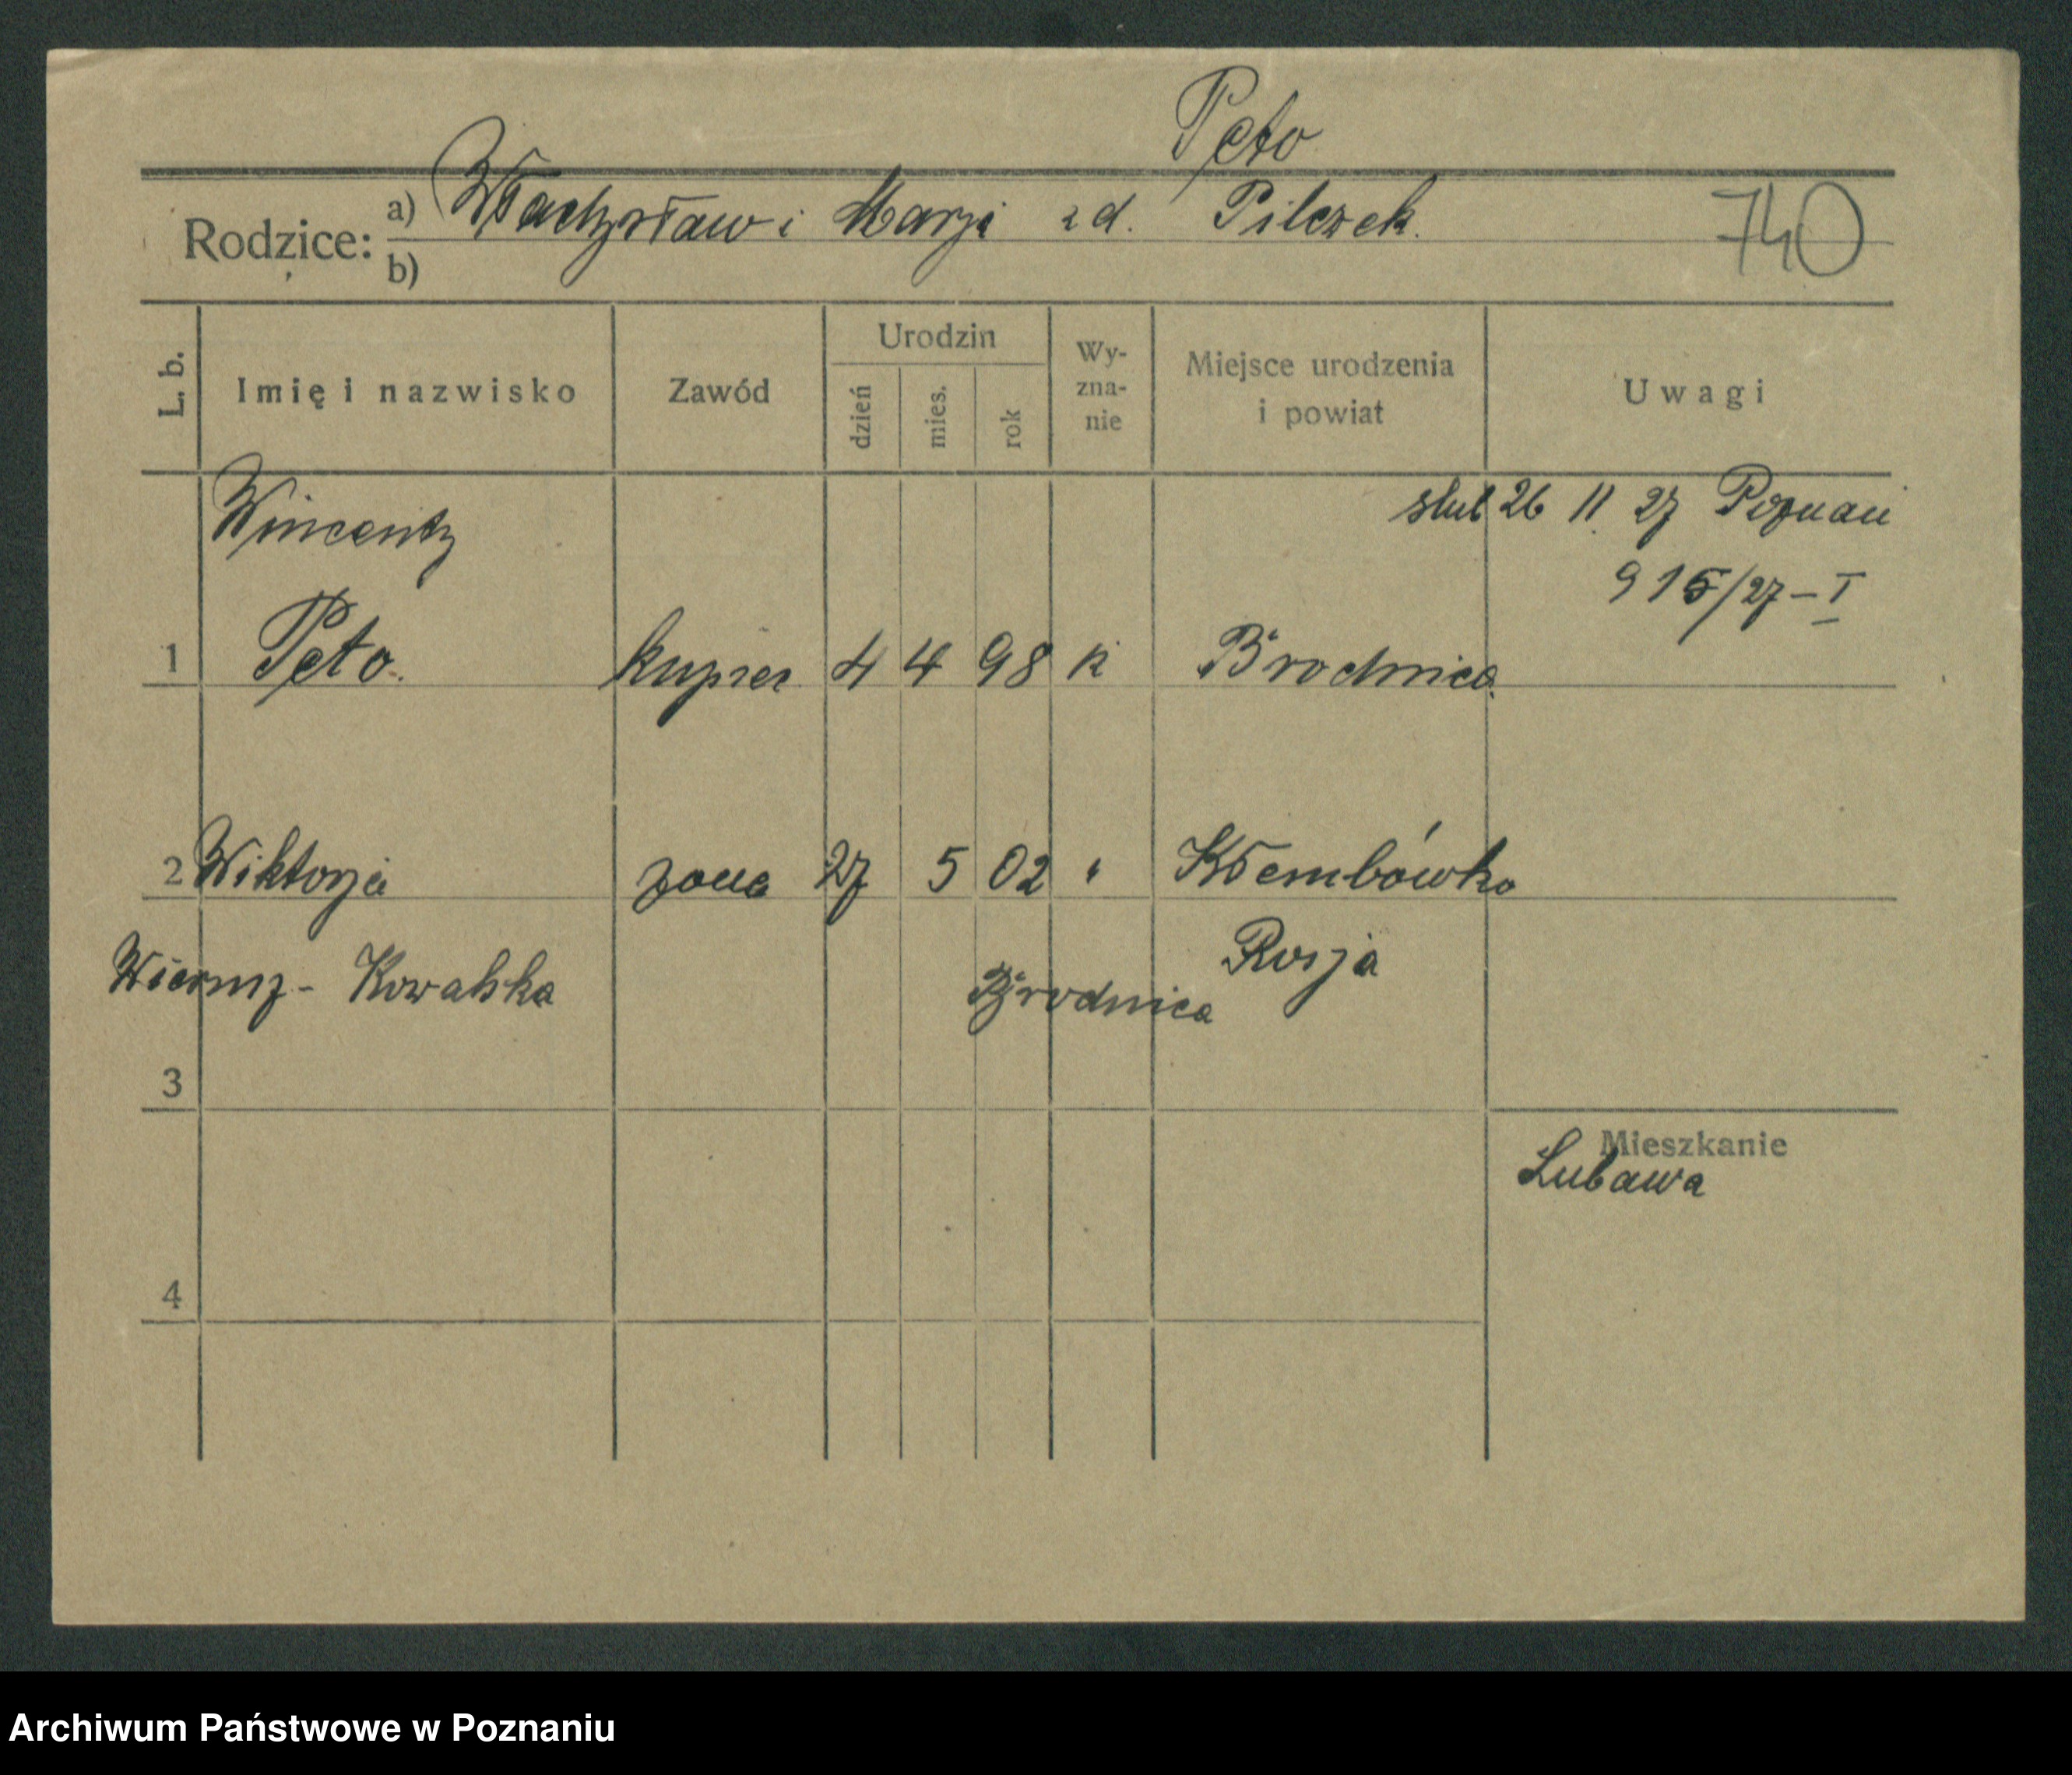 Peto
Rodzice: a) Władysław i Marja z d. Pilczek.
740
b)
L. b. Imię i nazwisko Zawód Urodzin dzień mies. rok Wy-zna-nie Miejsce urodzenia i powiat Uwagi
Wincenty ślub 26 11 27 Poznań
915/27-I
1 Peto. kupiec 4 4 98 k Brodnica
2 Wiktorja żona 27 5 02 " Kłembówko
Kowalska Rosja
Brodnica
3
Mieszkanie
Lubawa
4
Archiwum Państwowe w Poznaniu